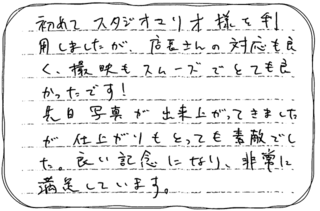 初めてスタジオマリオ様を利
用しましたが、店長さんの対応も良
く、撮映もスムーズでとても良
かったです！
先日写真が出来上がってきました
が仕上がりもとっても素敵でし
た。良い記念になり、非常に
満足しています。